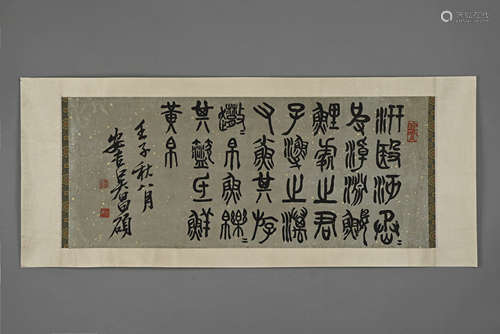 汧殹沔=烝
皮淖淵鰋
鯉處之君
子漁之澫
又小魚其斿
帛魚皪=
其盜氐鮮
黃帛
壬子秋八月
安吉吳昌碩